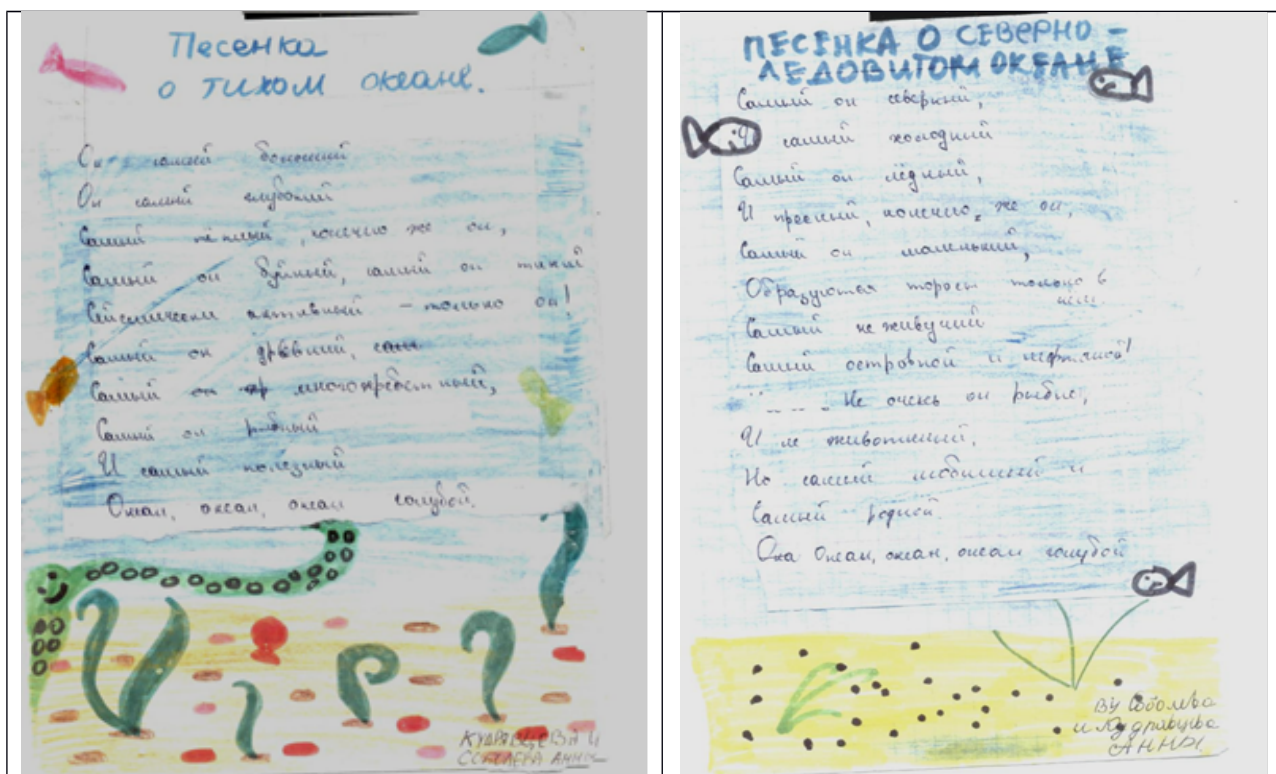 Песенка
о тихом океане.
Он самый большой
Он самый глубокий
Самый тёплый, конечно же он,
Самый он буйный, самый он тихий
Сейсмически активный – только он!
Самый он древний,
Самый он многохребетный,
Самый он рыбный
И самый полезный
Океан, океан, океан голубой.
КУДРЯВЦЕВА И
СОБОЛЕВА АННЫ
ПЕСЕНКА О СЕВЕРНО –
ЛЕДОВИТОМ ОКЕАНЕ
Самый он северный,
И самый холодный
Самый он лёдный,
И пресный, конечно, же он,
Самый он маленький,
Образуются торосы только в
нём.
Самый не живучий
Самый островной и нефтяной!
Не очень он рыбис,
И не животинный,
Но самый любимый и
Самый родной
Океан, океан, океан голубой
ВУ Соболева
и Кудрявцева
АННЫ.